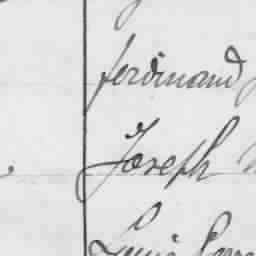 ferdinand
Joseph
Louis